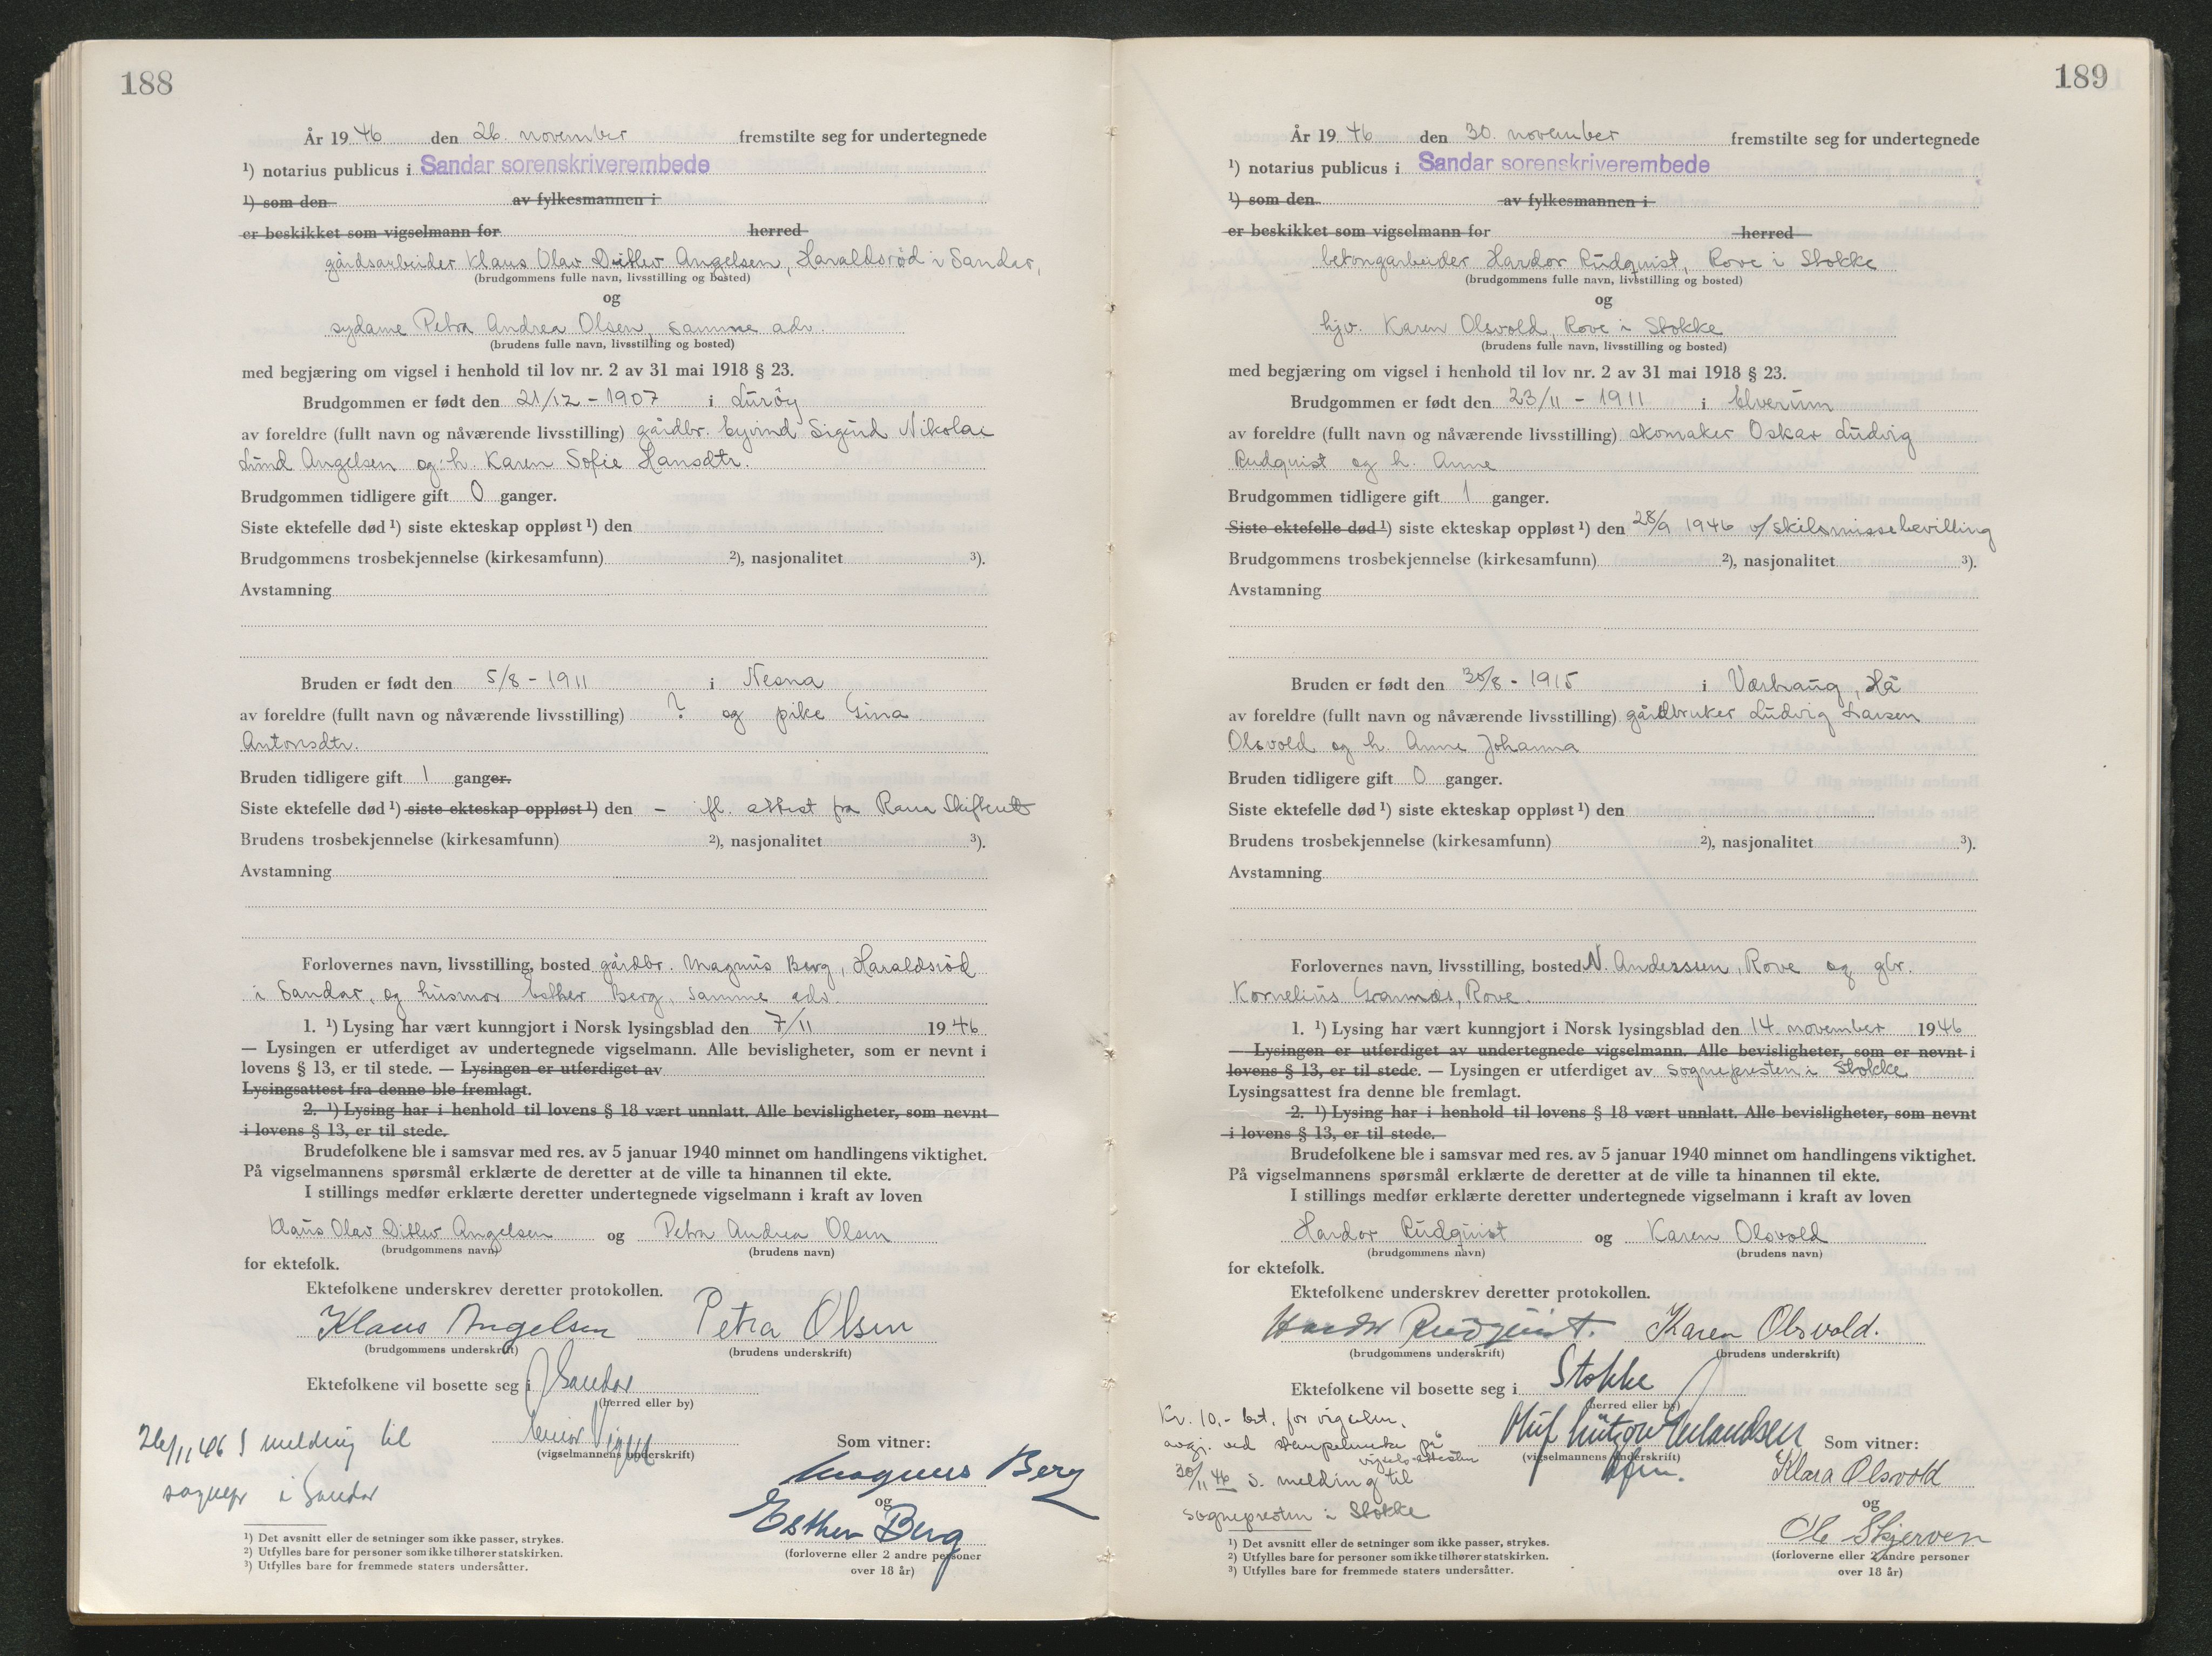 188
År 1946 den 26. november fremstilte seg for undertegnede
¹) notarius publicus i Sandar sorenskriverembede
¹) som den av fylkesmannen i
er beskikket som vigselmann for herred
gårdsarbeider Klaus Olav Ditlev Angelsen, Haraldsrød i Sandar,
(brudgommens fulle navn, livsstilling og bosted)
og
sydame Petra Andrea Olsen, samme adr.
(brudens fulle navn, livsstilling og bosted)
med begjæring om vigsel i henhold til lov nr. 2 av 31 mai 1918 § 23.
Brudgommen er født den 21/12 - 1907 i Lurøy
av foreldre (fullt navn og nåværende livsstilling) gårdbr. Eyvind Sigurd Nikolai
Lund Angelsen og h. Karen Sofie Hansdtr.
Brudgommen tidligere gift 0 ganger.
Siste ektefelle død ¹) siste ekteskap oppløst ¹) den
Brudgommens trosbekjennelse (kirkesamfunn) ²), nasjonalitet ³).
Avstamning
Bruden er født den 5/8 - 1911 i Nesna
av foreldre (fullt navn og nåværende livsstilling) ? og pike Gina
Antonsdtr.
Bruden tidligere gift 1 ganger.
Siste ektefelle død ¹) siste ekteskap oppløst ¹) den - ifl. attest fra Rana Skifterett
Brudens trosbekjennelse (kirkesamfunn) ²), nasjonalitet ³).
Avstamning
Forlovernes navn, livsstilling, bosted gårdbr. Magnus Berg, Haraldsrød
i Sandar, og husmor Esther Berg, samme adr.
1. ¹) Lysing har vært kunngjort i Norsk lysingsblad den 7/11 1946
— Lysingen er utferdiget av undertegnede vigselmann. Alle bevisligheter, som er nevnt i
lovens § 13, er til stede. — Lysingen er utferdiget av
Lysingsattest fra denne ble fremlagt.
2. ¹) Lysing har i henhold til lovens § 18 vært unnlatt. Alle bevisligheter, som nevnt
i lovens § 13, er til stede.
Brudefolkene ble i samsvar med res. av 5 januar 1940 minnet om handlingens viktighet.
På vigselmannens spørsmål erklærte de deretter at de ville ta hinannen til ekte.
I stillings medfør erklærte deretter undertegnede vigselmann i kraft av loven
Klaus Olav Ditlev Angelsen og Petra Andrea Olsen
(brudgommens navn) (brudens navn)
for ektefolk.
Ektefolkene underskrev deretter protokollen.
Klaus Angelsen Petra Olsen
(brudgommens underskrift) (brudens underskrift)
Ektefolkene vil bosette seg i Sandar
(herred eller by)
26/11 46 s melding til
sognepr i Sandar
(vigselmannens underskrift)
Som vitner:
Magnus Berg
og
Esther Berg
(forloverne eller 2 andre personer
over 18 år)
¹) Det avsnitt eller de setninger som ikke passer, strykes.
²) Utfylles bare for personer som ikke tilhører statskirken.
³) Utfylles bare for fremmede staters undersåtter.
189
År 1946 den 30. november fremstilte seg for undertegnede
¹) notarius publicus i Sandar sorenskriverembede
¹) som den av fylkesmannen i
er beskikket som vigselmann for herred
betongarbeider Hardor Rudquist, Rove i Stokke
(brudgommens fulle navn, livsstilling og bosted)
og
hjv. Karen Olsvold, Rove i Stokke
(brudens fulle navn, livsstilling og bosted)
med begjæring om vigsel i henhold til lov nr. 2 av 31 mai 1918 § 23.
Brudgommen er født den 23/11 - 1911 i Elverum
av foreldre (fullt navn og nåværende livsstilling) skomaker Oskar Ludvig
Rudquist og h. Anne
Brudgommen tidligere gift 1 ganger.
Siste ektefelle død ¹) siste ekteskap oppløst ¹) den 28/9 1946 v/ skilsmissebevilling
Brudgommens trosbekjennelse (kirkesamfunn) ²), nasjonalitet ³).
Avstamning
Bruden er født den 30/8 - 1915 i Varhaug, Hå
av foreldre (fullt navn og nåværende livsstilling) gårdbruker Ludvig Larsen
Olsvold og h. Anne Johanna
Bruden tidligere gift 0 ganger.
Siste ektefelle død ¹) siste ekteskap oppløst ¹) den
Brudens trosbekjennelse (kirkesamfunn) ²), nasjonalitet ³).
Avstamning
Forlovernes navn, livsstilling, bosted N. Anderssen, Rove og gbr.
Kornelius Gramnæs, Rove.
1. ¹) Lysing har vært kunngjort i Norsk lysingsblad den 14. november 1946
— Lysingen er utferdiget av undertegnede vigselmann. Alle bevisligheter, som er nevnt i
lovens § 13, er til stede. — Lysingen er utferdiget av sognepresten i Stokke
Lysingsattest fra denne ble fremlagt.
2. ¹) Lysing har i henhold til lovens § 18 vært unnlatt. Alle bevisligheter, som nevnt
i lovens § 13, er til stede.
Brudefolkene ble i samsvar med res. av 5 januar 1940 minnet om handlingens viktighet.
På vigselmannens spørsmål erklærte de deretter at de ville ta hinannen til ekte.
I stillings medfør erklærte deretter undertegnede vigselmann i kraft av loven
Hardor Rudquist og Karen Olsvold
(brudgommens navn) (brudens navn)
for ektefolk.
Ektefolkene underskrev deretter protokollen.
Hardor Rudquist. Karen Olsvold.
(brudgommens underskrift) (brudens underskrift)
Ektefolkene vil bosette seg i Stokke
(herred eller by)
Kr. 10,- bet. for vigselen,
avgj. ved stempelmerke på
vigselsattesten
30/11 46 s. melding til
sognepresten i Stokke
(vigselmannens underskrift)
Som vitner:
Klara Olsvold
og
Ole Skjerven
(forloverne eller 2 andre personer
over 18 år)
¹) Det avsnitt eller de setninger som ikke passer, strykes.
²) Utfylles bare for personer som ikke tilhører statskirken.
³) Utfylles bare for fremmede staters undersåtter.